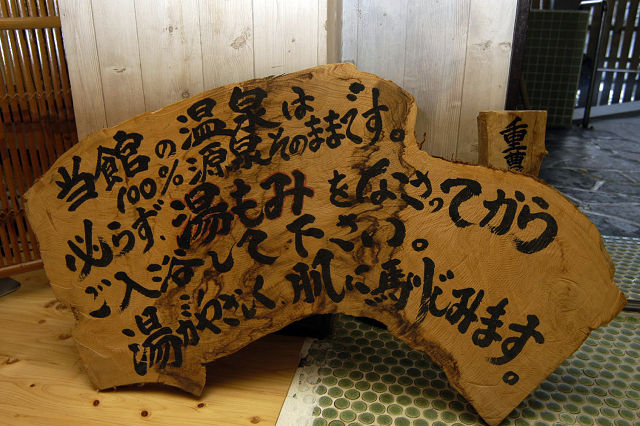 当館の温泉は
100%源泉そのままです。
必らず、湯もみをなさってから
ご入浴して下さい。
湯がやさしく肌に馴じみます。
重